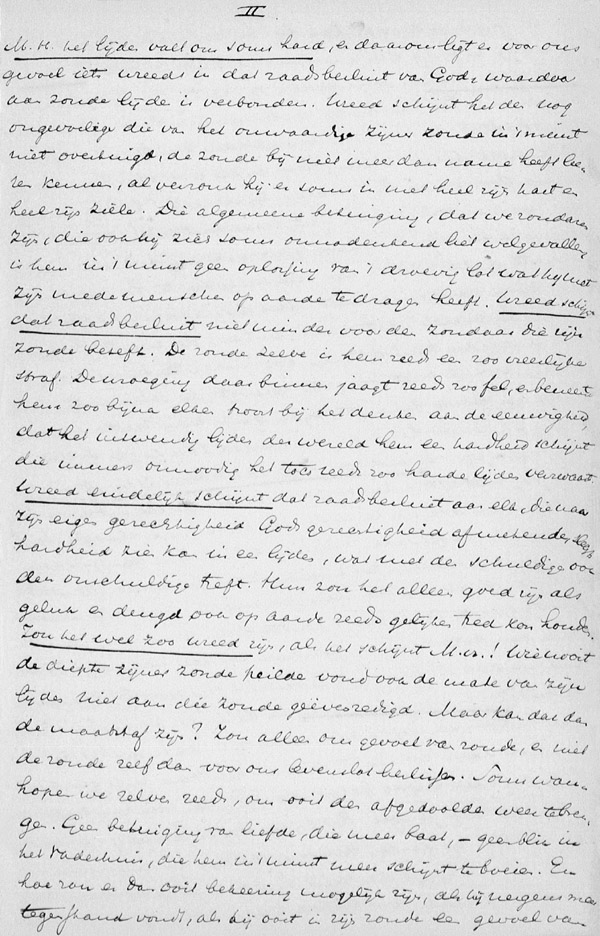 II
M. H. het lijden valt ons soms hard, en daarom ligt er voor ons
gevoel iets wreeds in dat raadsbesluit van God, waardoor
aan zonde lijden is verbonden. Wreed schijnt het den nog
ongevoelige die van het onwaardige zijner zonde in 't minst
niet overtuigd, de zonde bij niet meer dan name heeft lee-
ren kennen, al verzonk hij er soms in met heel zijn hart en
heel zijn ziele. Die algemeene betuiging, dat we zondaren
zijn, die ook hij zich soms onnadenkend liet welgevallen,
is hem in 't minst geen oplossing van 't droevig lot wat hij met
zijn medemenschen op aarde te dragen heeft. Wreed schijnt
dat raadsbesluit niet minder voor den zondaar die zijn
zonde beseft. De zonde zelve is hem reeds een zoo vreeslijke
straf. De wroeging daar binnen jaagt reeds zoo fel, en beneemt
hem zoo bijna elken troost bij het denken aan de eeuwigheid,
dat het inwendig lijden der wereld hem een hardheid schijnt
die immers onnoodig het toch reeds zoo harde lijden verzwaart.
Wreed eindelijk schijnt dat raadsbesluit aan elk, die naar
zijn eigen gerechtigheid Gods gerechtigheid afmetende, slechts
hardheid zien kan in een lijden, wat met den schuldige ook
den onschuldige treft. Hun zou het alleen goed zijn als
geluk en deugd ook op aarde reeds gelijken tred kon houden.
Zou het wel zoo wreed zijn, als het schijnt M. H.! Wie nooit
de diepte zijner zonde peilde vond ook de mate van zijn
lijden niet aan die zonde geëvenredigd. Maar kan dat dan
de maatstaf zijn? Zou alleen ons gevoel van zonde, en niet
de zonde zelf dan voor ons levenslot beslissen. Soms wan-
hopen we zelven reeds, om ooit den afgedoolde weer te bren-
gen. Geen betuiging van liefde, die meer baat, – geen blik in
het Vaderhuis, die hem in 't minst meer schijnt te boeien. En
hoe zou er dan ooit bekeering mogelijk zijn, als hij nergens meer
tegenstand vondt, als hij ooit in zijn zonde een gevoel van